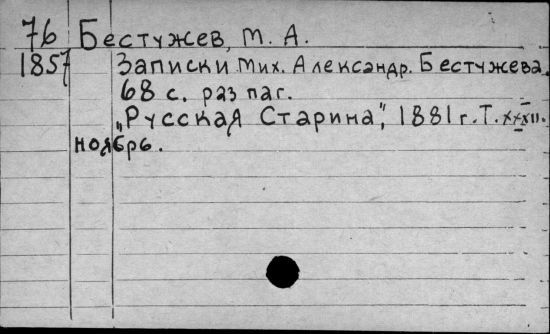 76 Бестужев, М. А.
1857 Записки Мих. Александр. Бестужева.
68 с. раз паг.
„Русская Старина", 1881 г. Т. XXXII.
ноябрь.